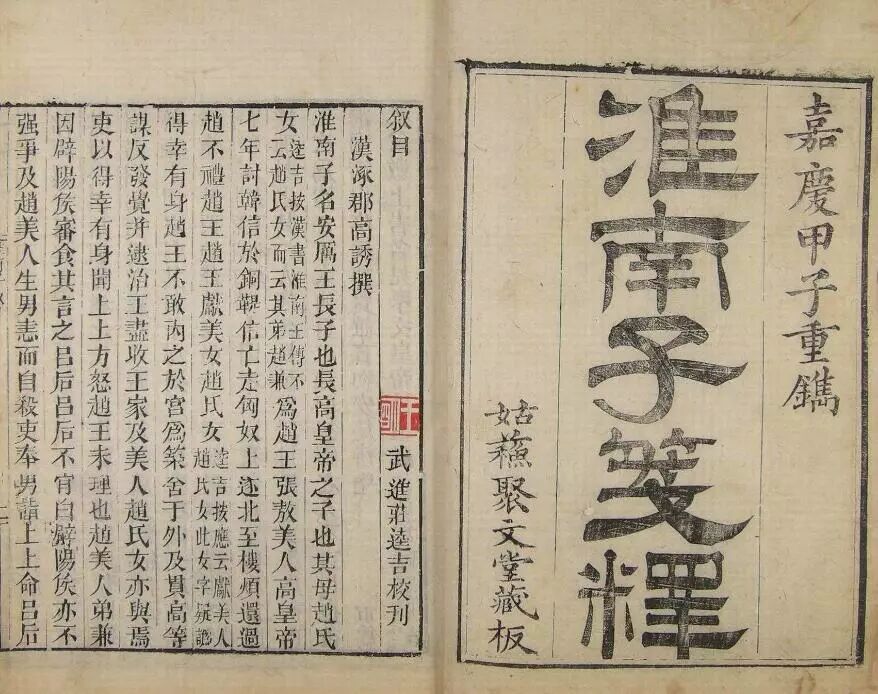 嘉慶甲子重鐫
淮南子箋釋
姑蘇聚文堂藏板
叙目
漢涿郡高誘撰
武進莊逵吉校刊
淮南子名安厲王長子也長高皇帝之子也其母趙氏
女逵吉按漢書淮南王傳不云趙氏女而云其弟趙兼為趙王張敖美人高皇帝
七年討韓信於銅鞮信亡走匈奴上遂北至樓煩還過
趙不禮趙王趙王獻美女趙氏女逵吉按應云獻美人趙氏女此女字疑譌
得幸有身趙王不敢內之於宮為築舍于外及貫高等
謀反發覺并逮治王盡收王家及美人趙氏女亦與焉
吏以得幸有身聞上上方怒趙王未理也趙美人弟兼
因辟陽侯審食其言之呂后呂后不肎白辟陽侯亦不
强爭及趙美人生男恚而自殺吏奉男詣上上命呂后